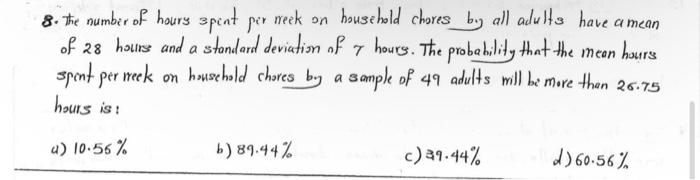 8. The number of hours spent per week on household chores by all adults have a mean
of 28 hours and a standard deviation of 7 hours. The probability that the mean hours
spent per week on household chores by a sample of 49 adults will be more than 26.75
hours is:
a) 10.56% b) 89.44% c) 39.44% d) 60.56%